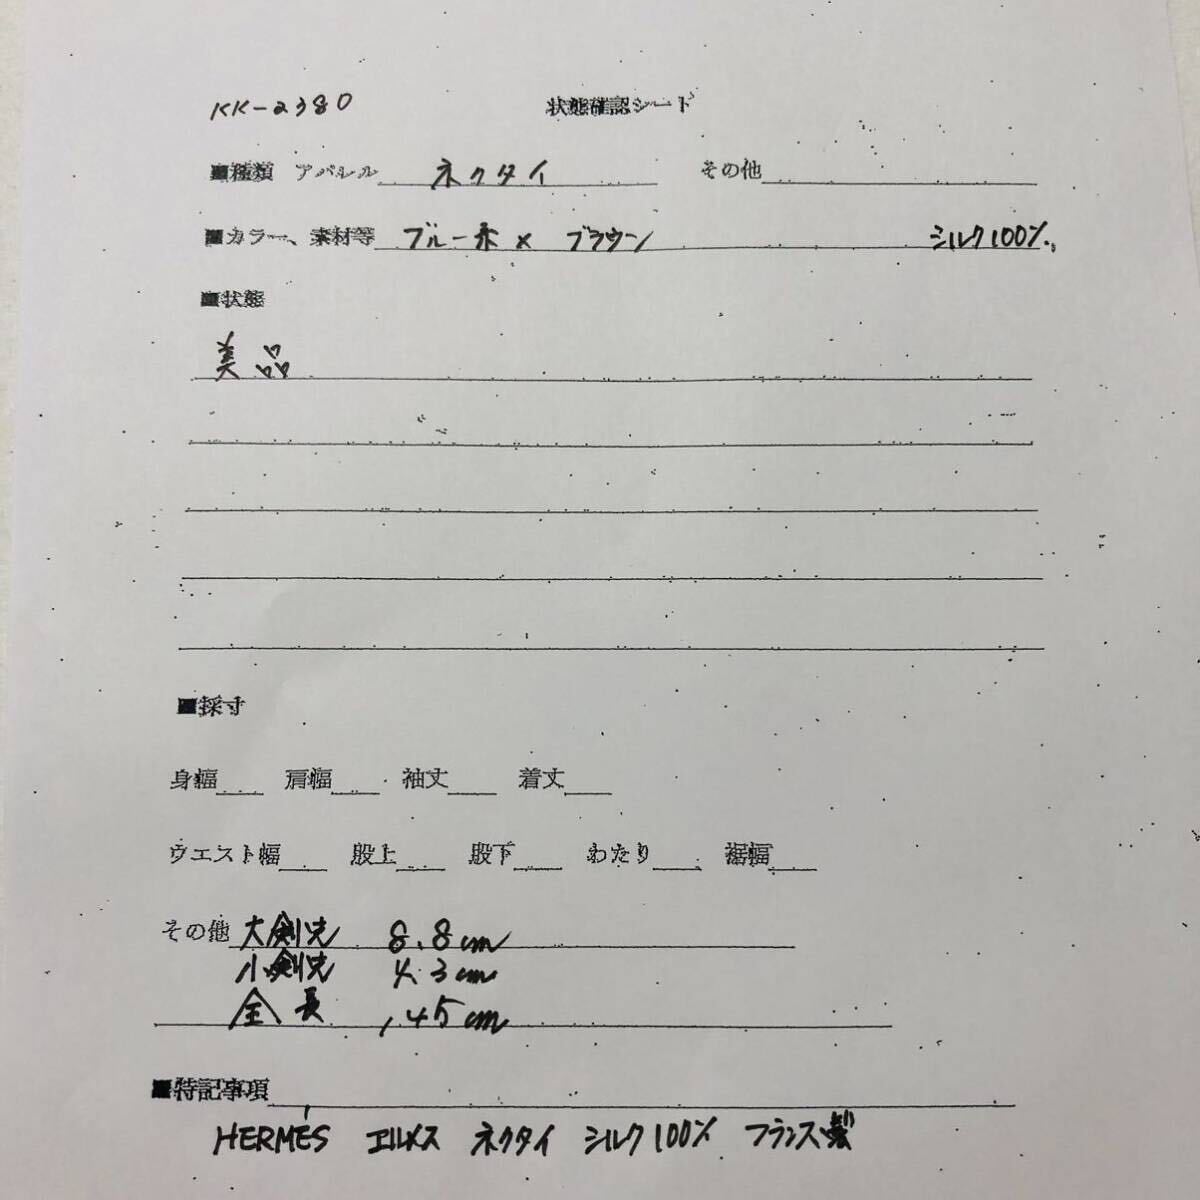 KK-2380 状態確認シート
■種類 アパレル ネクタイ その他
■カラー、素材等 ブルー系 × ブラウン シルク100%。
■状態
美品
■採寸
身幅 肩幅 袖丈 着丈
ウエスト幅 股上 股下 わたり 裾幅
その他 大剣先 8.8cm
小剣先 4.3cm
全長 145cm
■特記事項
HERMÈS エルメス ネクタイ シルク100% フランス製